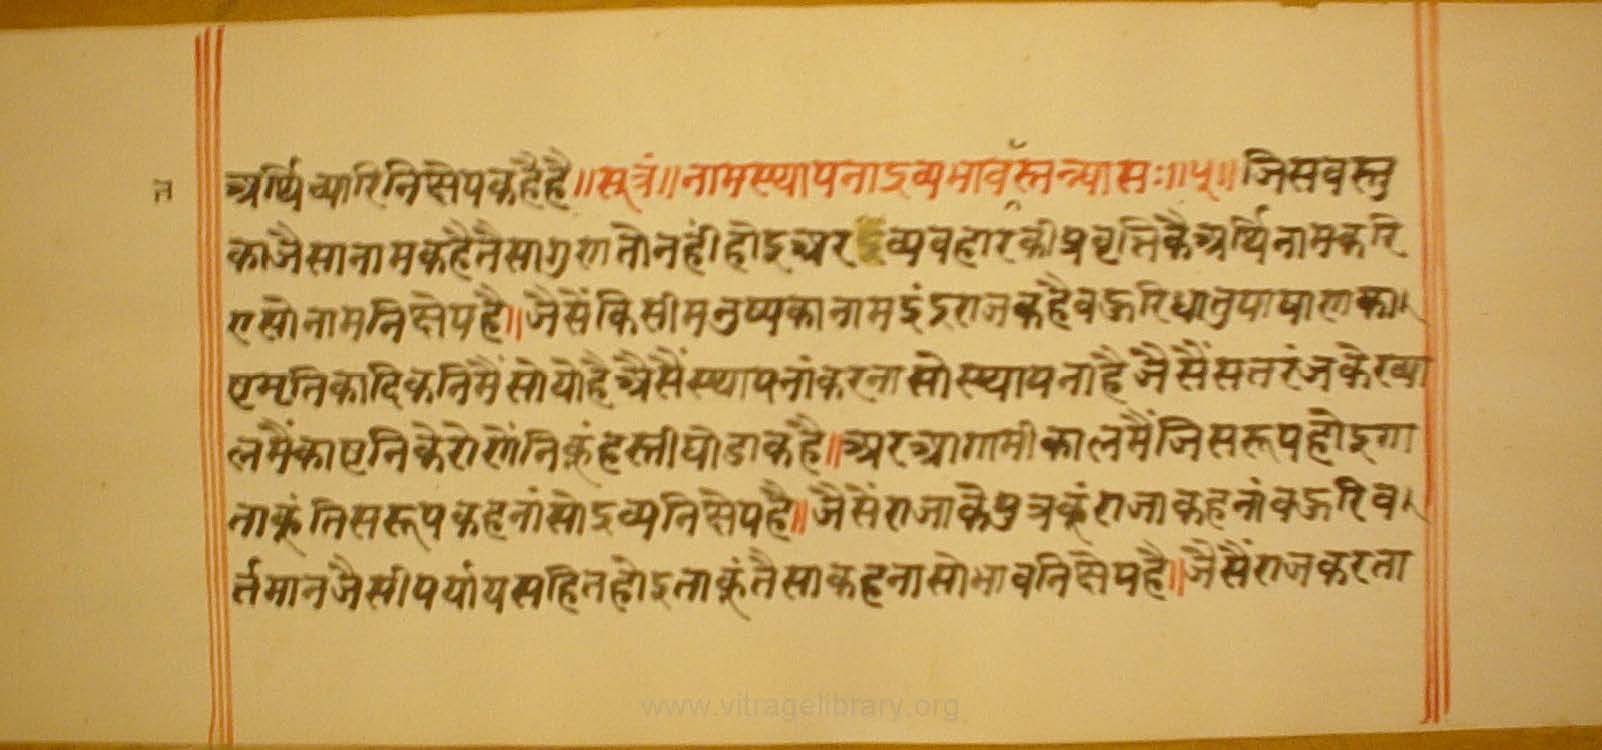 अर्थि च्यारि निक्षेप कहै है॥ सूत्रं॥ नामस्थापनाद्रव्यभावस्तन्न्यासः॥५॥ जिस वस्तु
का जैसा नाम कहै तैसा गुण तो नहीं होइ अर व्यवहार की प्रवृत्ति कै अर्थि नाम करि
ए सो नाम निक्षेप है॥ जैसें किसी मनुष्य का नाम इंद्रराज कहै वऊरि धातु पाषाण का
ष्ट मृतिकादिक तिमैं सो यो है अैसैं स्थापनां करना सो स्थापना है जैसैं सतरंज के ख्या
ल मैं काष्ट नि के गोटौं नि कूं हस्ती घोडा कहै॥ अर आगामी काल मैं जिस रूप होइगा
ताकूं तिस रूप कहनां सो द्रव्य निक्षेप है॥ जैसें राजा के पुत्र कूं राजा कहनां वऊरि व
र्तमान जैसी पर्याय सहित होइ ताकूं तैसा कहना सो भाव निक्षेप है॥ जैसैं राज करता
www.vitragelibrary.org